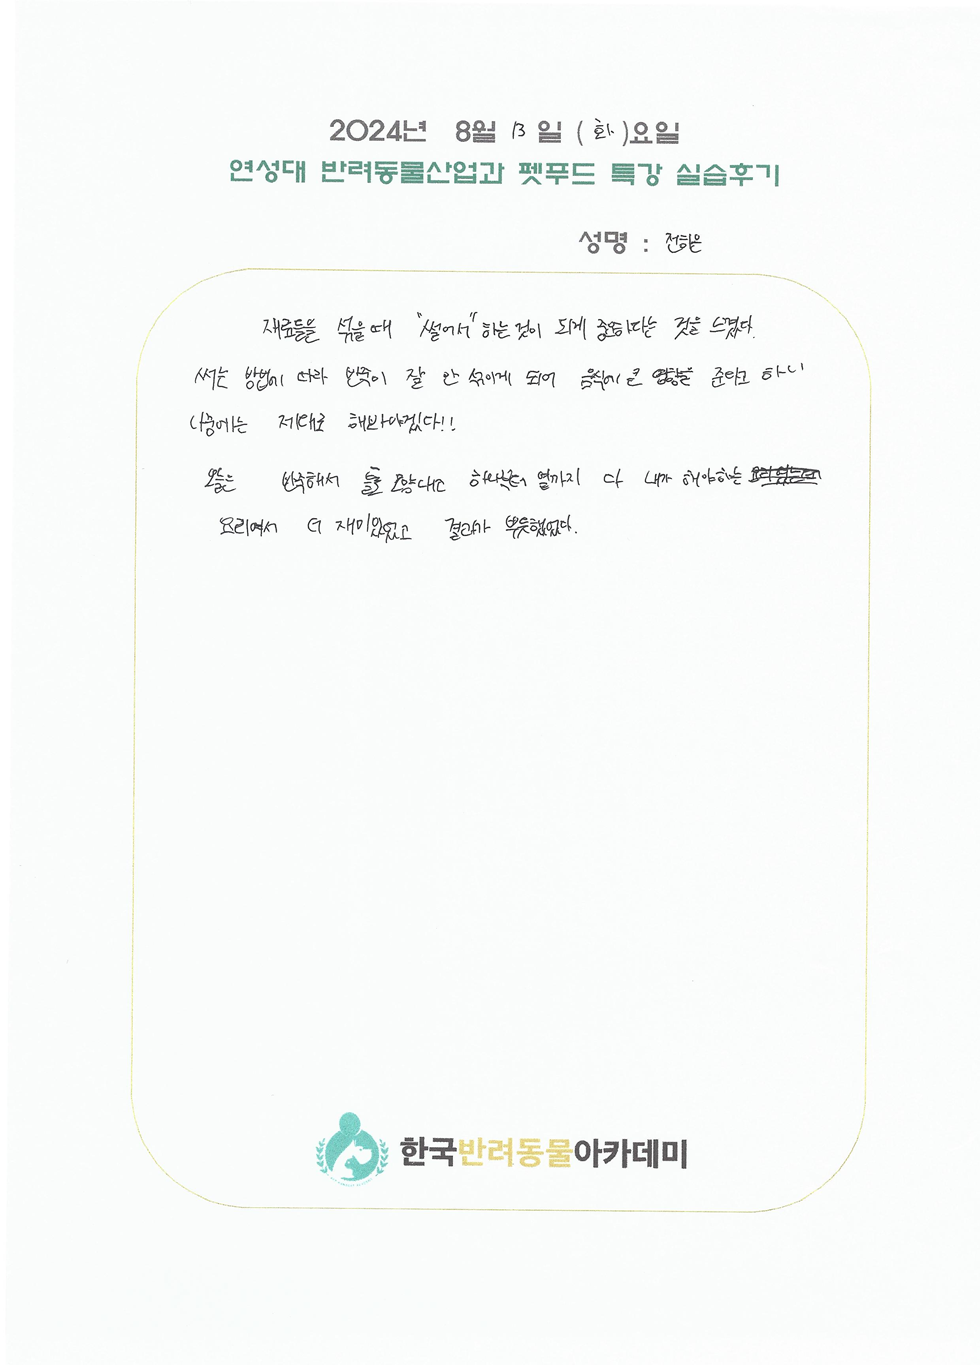 2024년 8월 13일 (화)요일
연성대 반려동물산업과 펫푸드 특강 실습후기
성명 : 전하은
재료들을 섞을 때 "썰어서" 하는 것이 되게 중요하다는 것을 느꼈다.
써는 방법에 따라 반죽이 잘 안 섞이게 되어 음식에 큰 영향을 준다고 하니
나중에는 제대로 해봐야겠다!!
오늘은 반죽해서 틀로 모양내고 하나부터 열까지 다 내가 해야하는
요리여서 더 재미있었고 결과가 뿌듯했었다.
한국반려동물아카데미